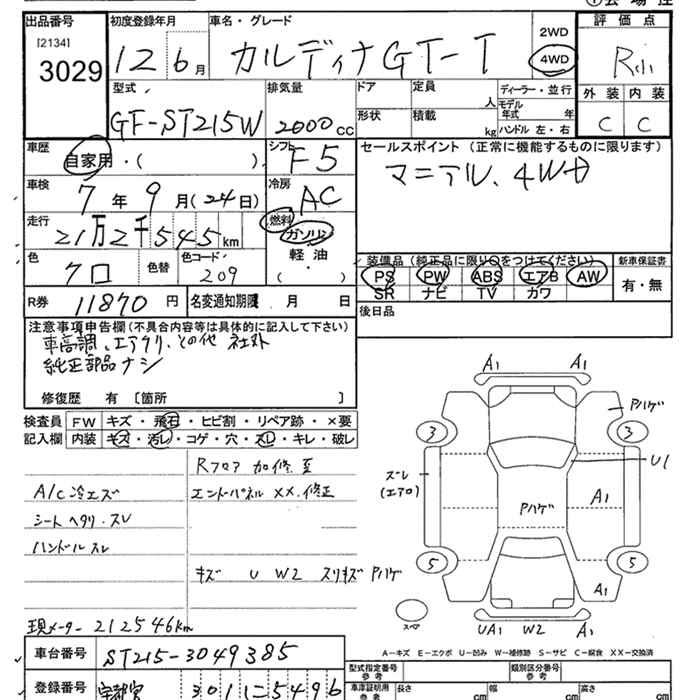 出品番号 初度登録年月 車名・グレード 評価点
[2134]
3029
12 6月 カルディナGT-T 2WD 4WD R
外装 内装
C C
型式 排気量 ドア 定員 人 ディーラー・並行
GF-ST215W 2000cc 形状 積載 kg モデル年式 年
ハンドル 左・右
車歴 自家用・( ) シフト F5
セールスポイント(正常に機能するものに限ります)
マニアル、4WD
車検 7年9月(24日) 冷房 AC
走行 21万2千545km 燃料 ガソリン 軽油 ・ ( )
色 クロ 色替 色コード 209
装備品(純正品に限り○をつけてください) 新車保証書
PS PW ABS エアB AW 有・無
SR ナビ TV カワ
R券 11870円 名変通知期限 月 日 後日品
注意事項申告欄(不具合内容等は具体的に記入して下さい)
車高調、エアクリ、その他 社外
純正部品ナシ
修復歴 有 〔箇所 〕
検査員記入欄 FW キズ・飛石・ヒビ割・リペア跡・×要
内装 キズ・汚レ・コゲ・穴・スレ・キレ・破レ
Rフロア 加修至
A/C冷エズ エンドパネル XX.修正
シートヘタリ・スレ
ハンドルスレ
キズ U W2 スリキズ Pハゲ
現メーター 212546km
A1 A1
Pハゲ
3 3
ズレ
(エアロ)
U1
A1
Pハゲ
5 5
A1
スペア
UA1 W2 A1
A-キズ E-エクボ U-凹み W-補修跡 S-サビ C-腐食 XX-交換済
車台番号 ST215-3049385
型式指定番号 参考 類別区分番号 参考
登録番号 宇都宮 301 に 5496
車庫証明用 参考 長さ cm 幅 cm 高さ cm